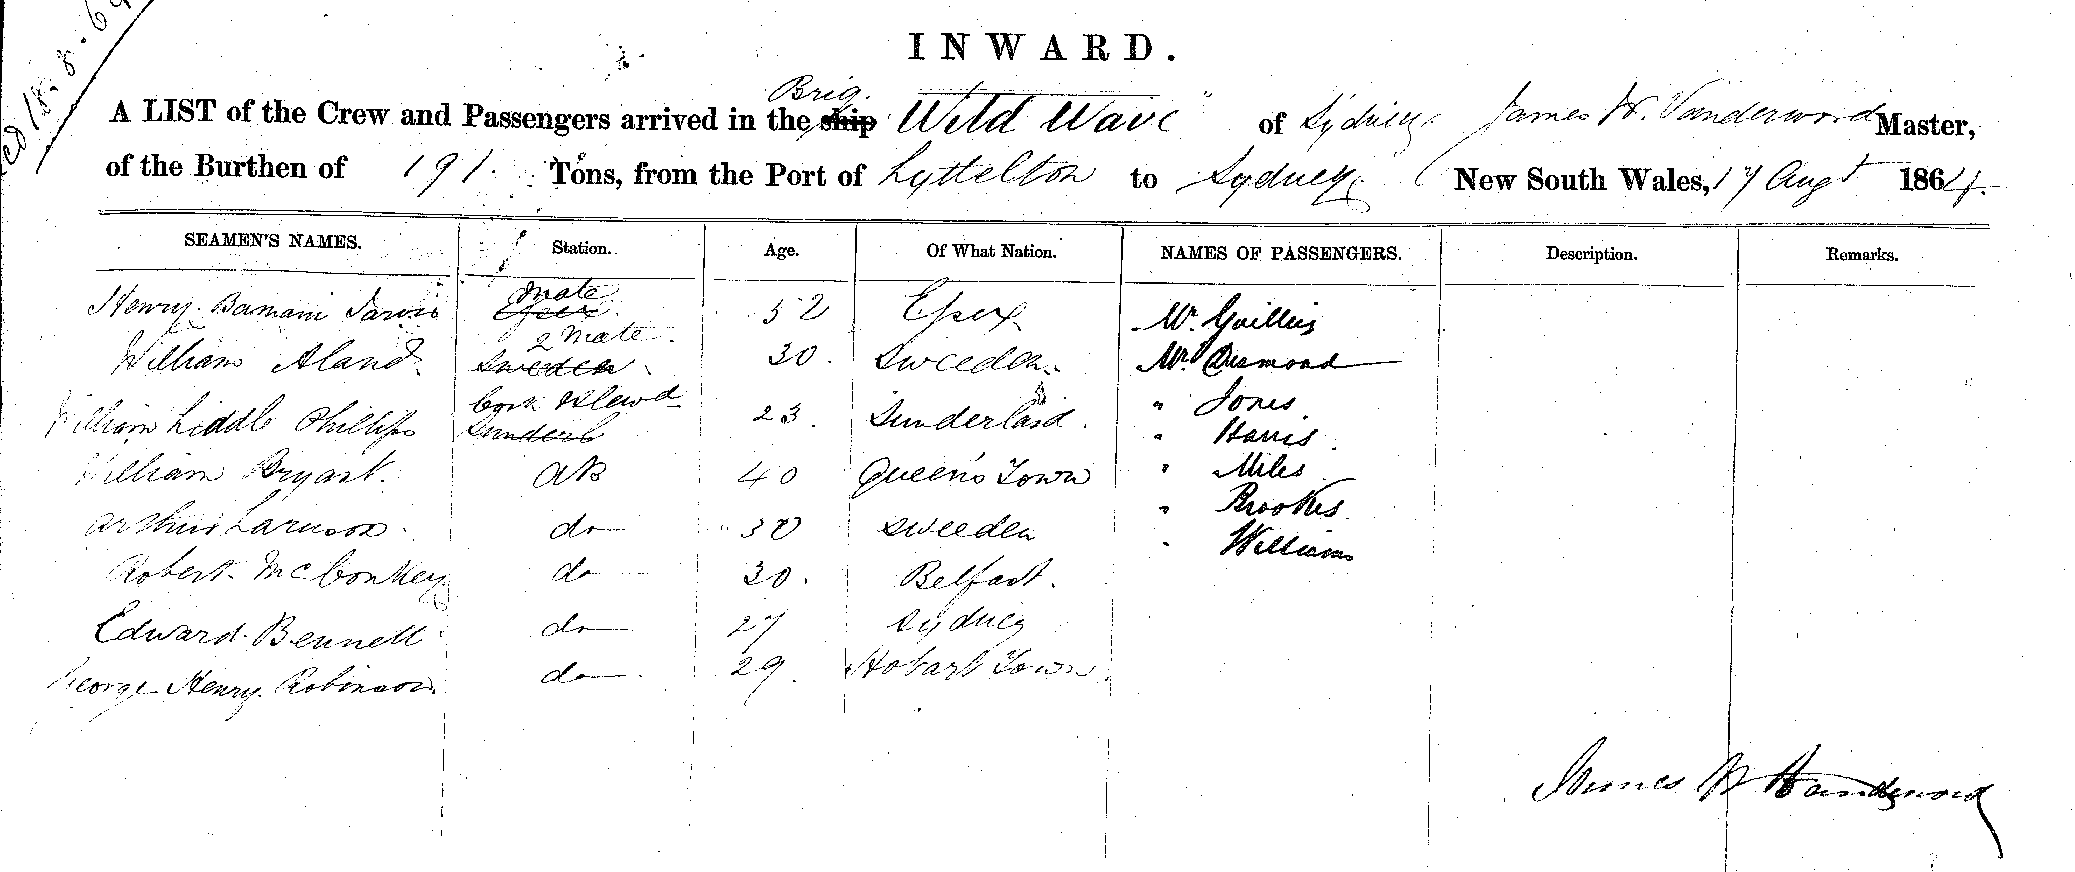 18.8.64
INWARD.
Brig.
A LIST of the Crew and Passengers arrived in the ship "Wild Wave" of Sydney James W. Vanderword Master,
of the Burthen of 191. Tons, from the Port of Lyttelton to Sydney New South Wales, 17 Augt 1864.
SEAMEN'S NAMES. Station. Age. Of What Nation. NAMES OF PASSENGERS. Description. Remarks.
mate
Henry Jarvis Essex 52 Essex Mr. Guilleis
2 mate
William Aland Sweden 30. Sweeden Mr. Desmond
Cook &
William Liddle Phillips Sunderl 23. Sunderland. " Jones
" Harris
William Bryant. AB 40 Queen's Town " Miles
" Brookes
Arthur do 30 Sweeden " Williams
Robert McConkey do 30. Belfast.
Edward Bennett do 27 Sydney
George Henry Robinson do 29. Hobart Town
James W Vanderword